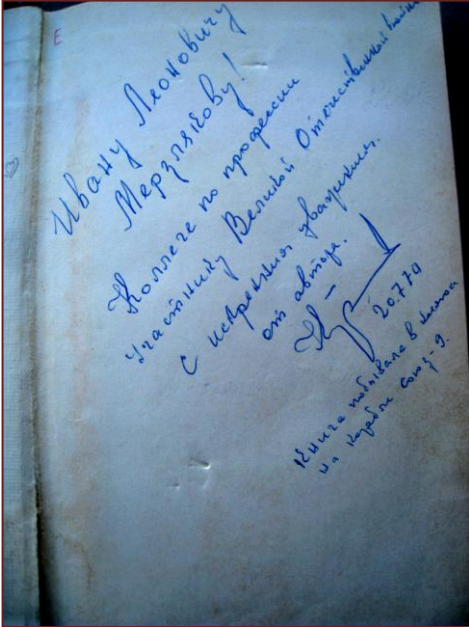 Е
Ивану Леоновичу
Мерзлякову!
Коллеге по профессии
Участнику Великой Отечественной войны
С искренним уважением.
от автора.
20.7.70
Книга побывала в космосе
на корабле Союз-9.